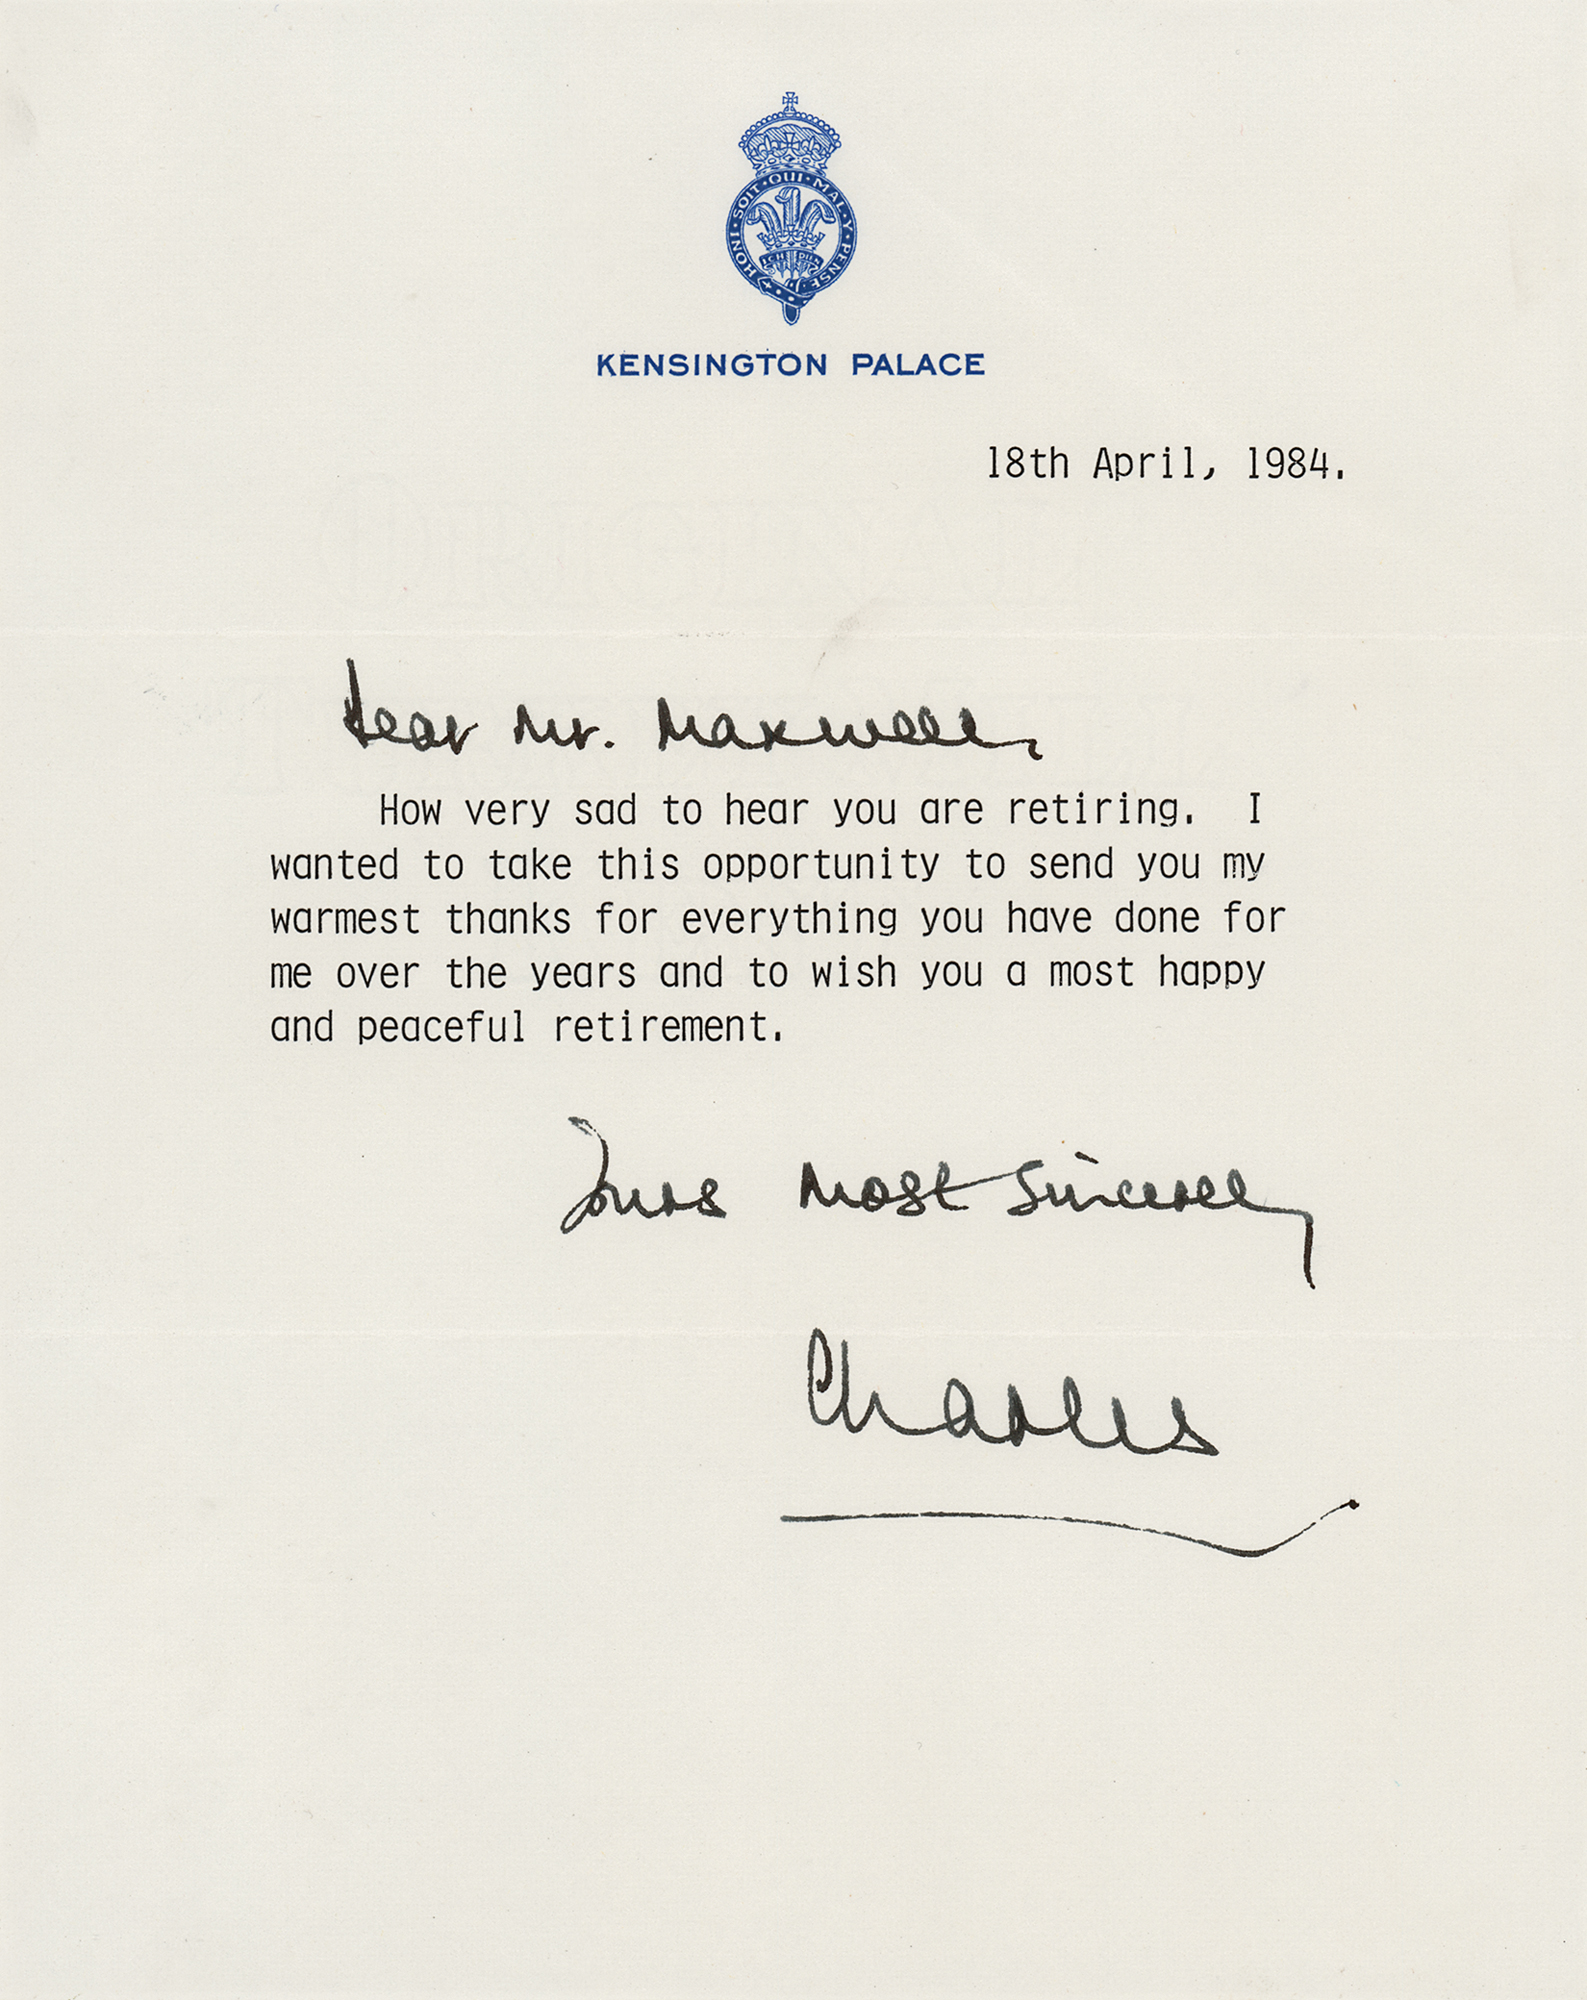 HONI · SOIT · QUI · MAL · Y · PENSE
ICH DIEN
KENSINGTON PALACE
18th April, 1984.
Dear Mr. Maxwell,
How very sad to hear you are retiring. I
wanted to take this opportunity to send you my
warmest thanks for everything you have done for
me over the years and to wish you a most happy
and peaceful retirement.
Yours most sincerely
Charles